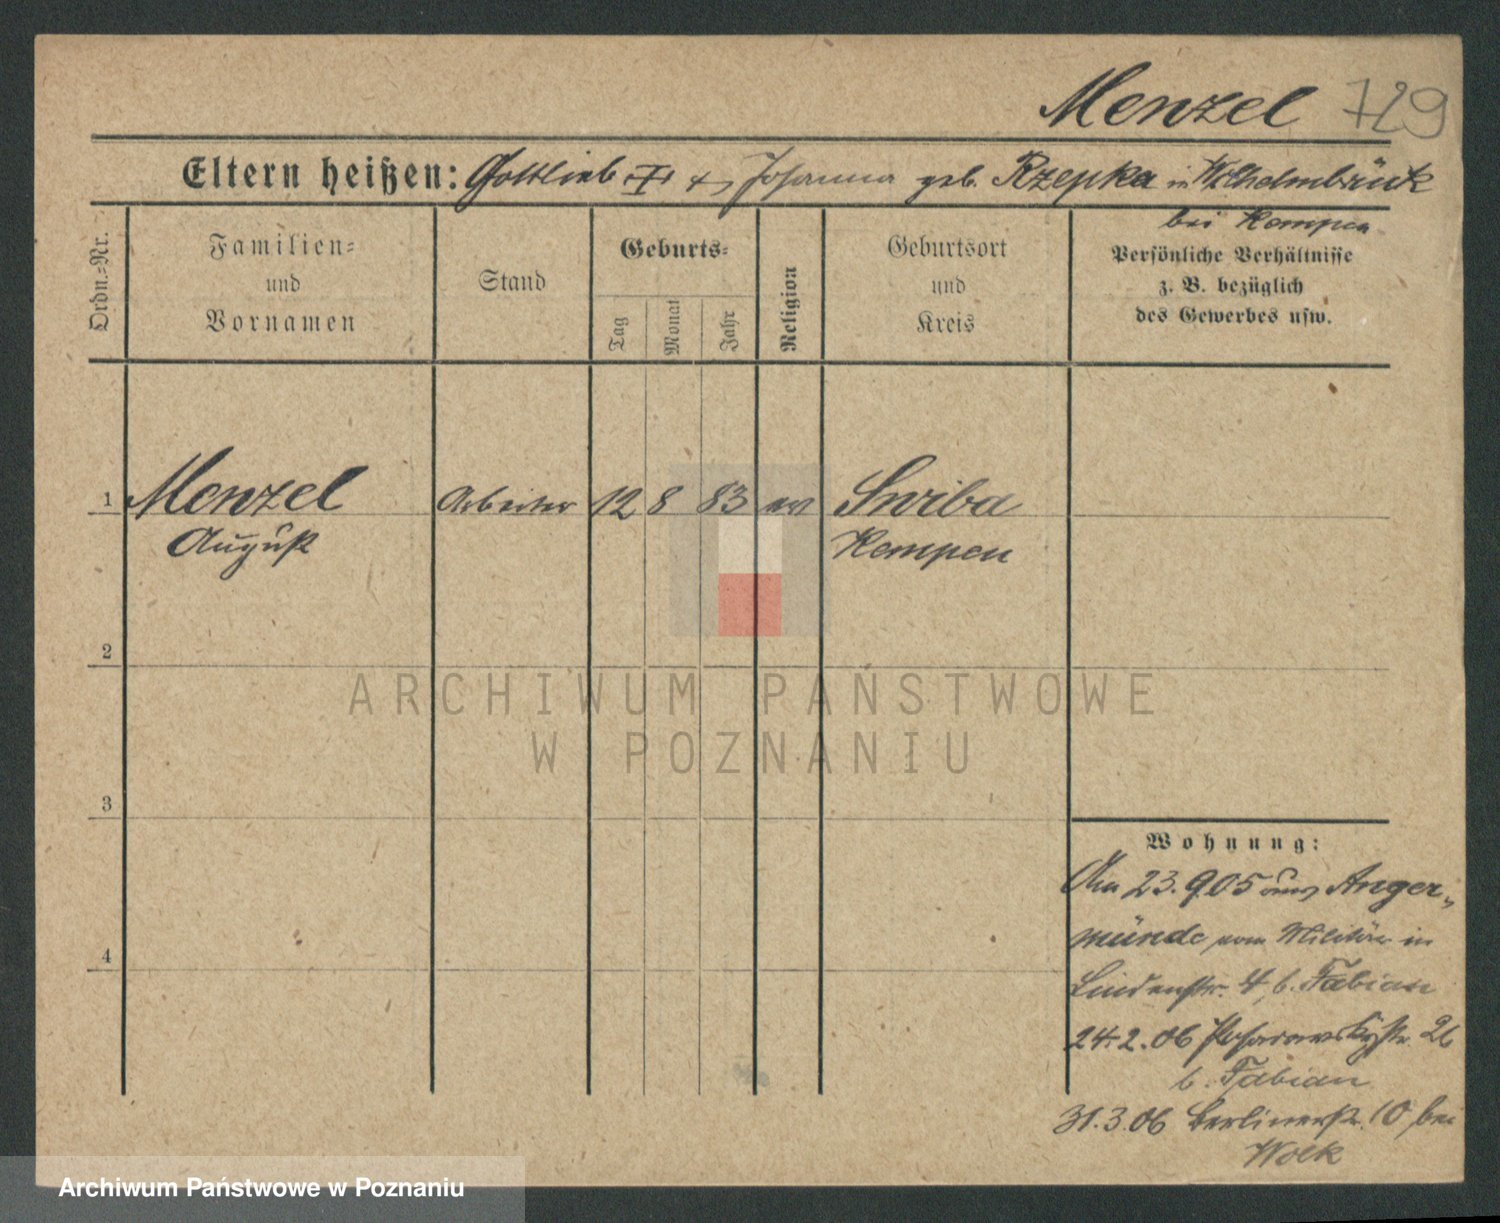 Menzel 729
Eltern heißen: Gottlieb u. Johanna geb. Rzepka in Wilhelmsbrück
bei Kempen
Ordn.-Nr.
Familien-
und
Vornamen
Stand
Geburts-
Tag
Monat
Jahr
Religion
Geburtsort
und
Kreis
Persönliche Verhältnisse
z. B. bezüglich
des Gewerbes usw.
1 Menzel Arbeiter 12 8 83 ev Swiba
August Kempen
2
ARCHIWUM PAŃSTWOWE
W POZNANIU
3
Wohnung:
Am 23.9.05 aus Anger-
münde vom Militär in
4
Lindenstr. 4, b. Fabian
24.2.06 26
b. Fabian
31.3.06 Berlinerstr. 10 bei
Wolk
Archiwum Państwowe w Poznaniu